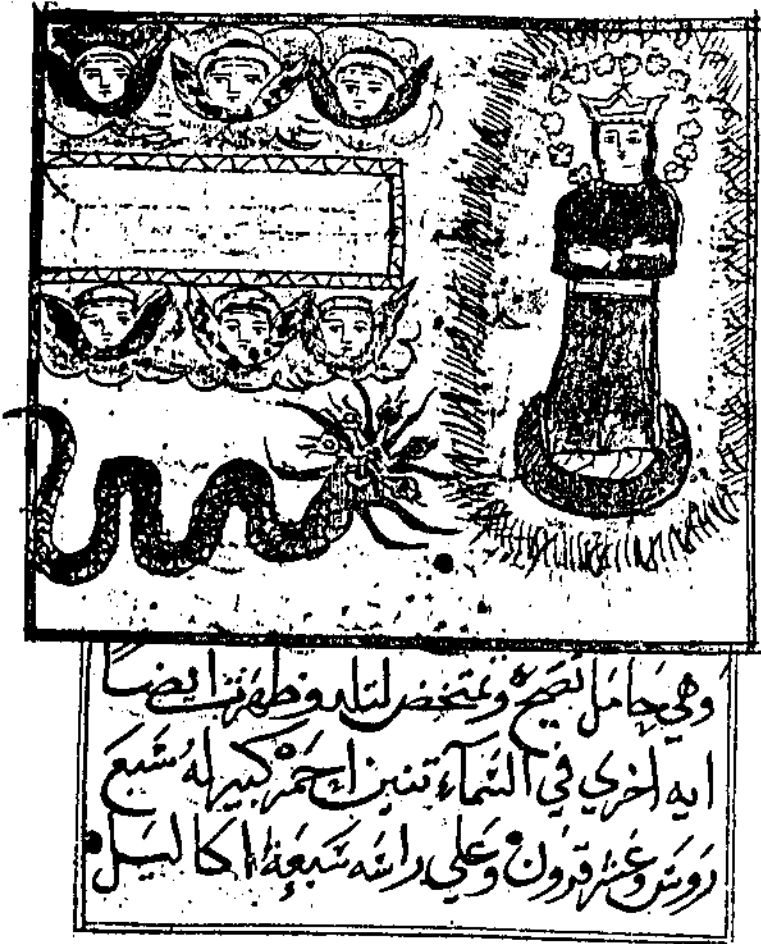 وهي حامل تصيح وتمتخض لتلد وظهرت ايضا
ايه اخري في السماء تنين احمر كبير له سبع
روس وعشر قرون وعلي راسه سبعة اكاليل